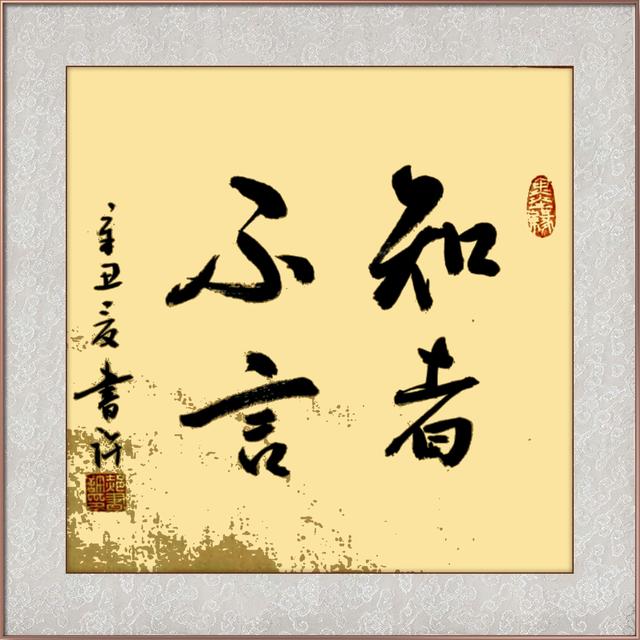 知者
不言
辛丑夏書